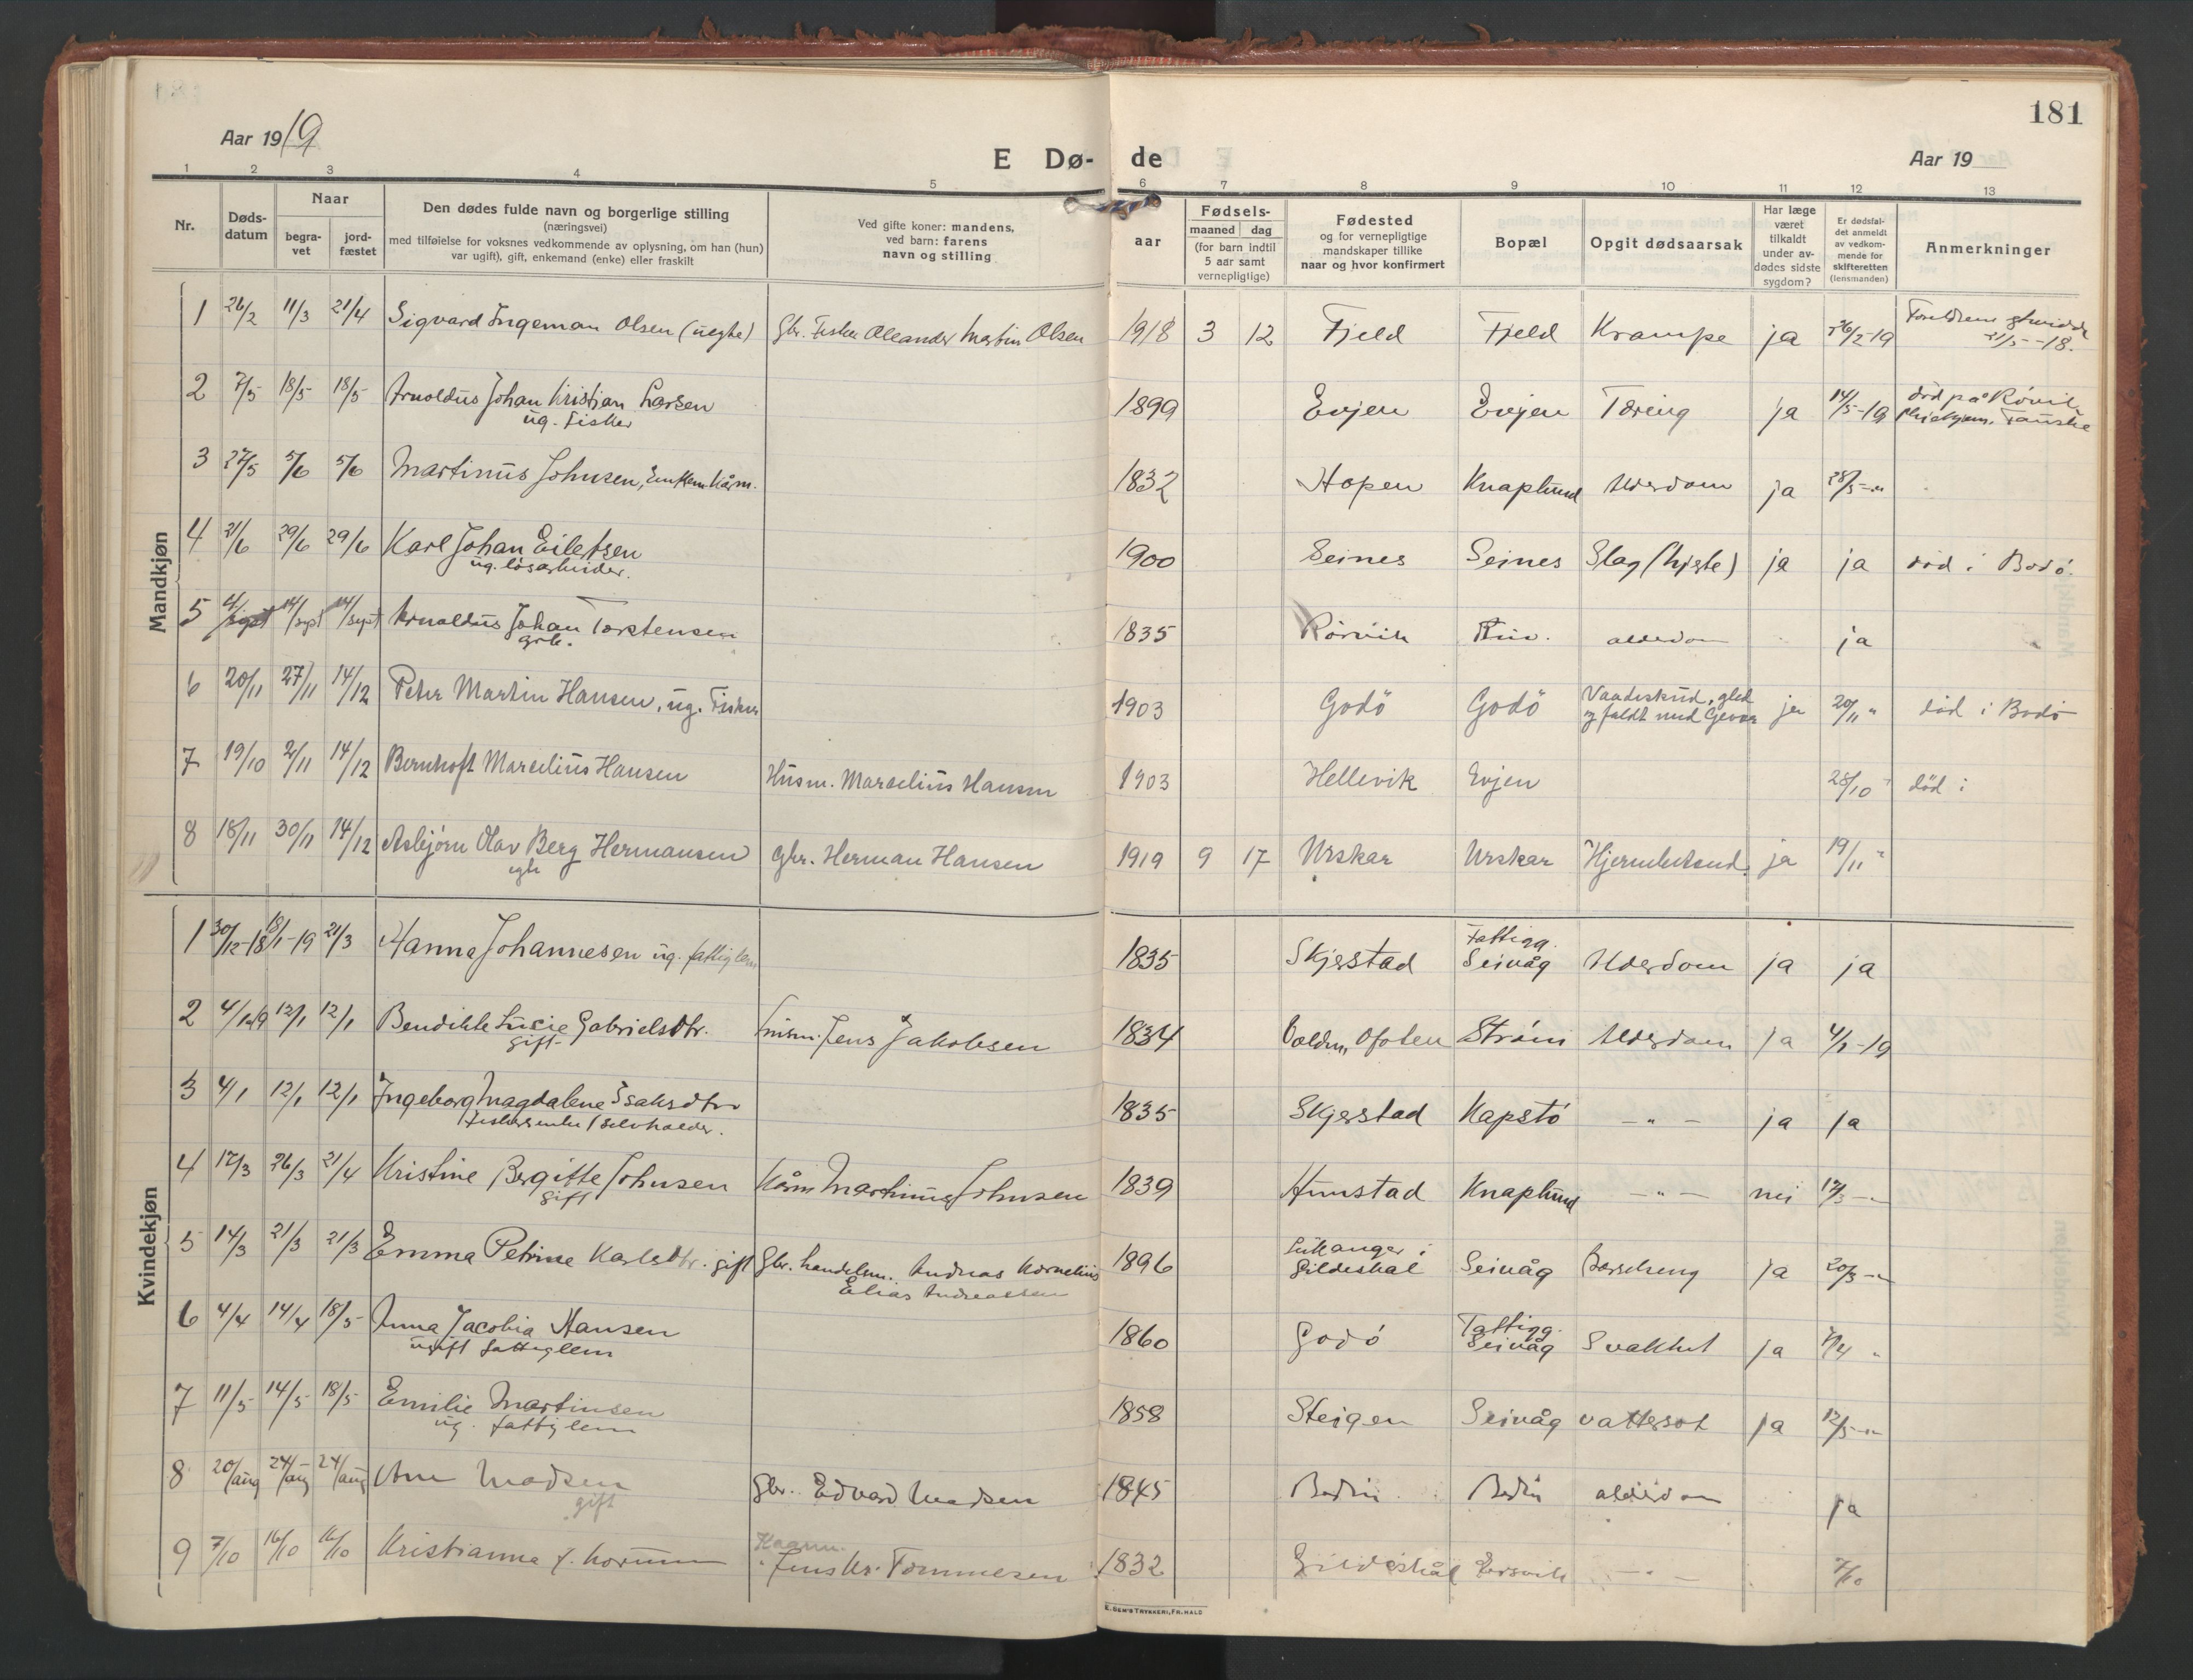 181
Aar 1919
E Dø- de
Aar 19
1 2 3 4 5 6 7 8 9 10 11 12 13
Nr.
Døds-
datum
Naar
begra-
vet
jord-
fæstet
Den dødes fulde navn og borgerlige stilling
(næringsvei)
med tilføielse for voksnes vedkommende av oplysning, om han (hun)
var ugift), gift, enkemand (enke) eller fraskilt
Ved gifte koner: mandens,
ved barn: farens
navn og stilling
Fødsels-
aar
maaned dag
(for barn indtil
5 aar samt
vernepligtige)
Fødested
og for vernepligtige
mandskaper tillike
naar og hvor konfirmert
Bopæl
Opgit dødsaarsak
Har læge
været
tilkaldt
under av-
dødes sidste
sygdom?
Er dødsfal-
det anmeldt
av vedkom-
mende for
skifteretten
(lensmanden)
Anmerkninger
Mandkjøn
1 26/2 11/3 21/4 Sigvard Ingeman Olsen (uegte) Gbr. Fisker Martin Olsen 1918 3 12 Fjeld Fjeld Krampe ja 26/2-19
21/5-18.
2 7/5 18/5 18/5 Arnoldus Johan Kristian Larsen 1899 Evjen Evjen Tæring ja 14/5-19 død på Rönvik
ug. Fisker Fauske
3 27/5 5/6 5/6 Martinus Johnsen, Enkem. Kårm. 1832 Hopen Knaplund Alderdom ja 28/5-"
4 21/6 29/6 29/6 Karl Johan Eilertsen 1900 Seines Seines Slag (hjerte) ja ja död i Bodö.
ug. løsarbeider.
5 4/sept 14/sept 14/sept Arnoldus Johan Torstensen 1835 Rörvik alderdom ja
6 20/11 27/11 14/12 Peter Martin Hansen, ug. Fisker 1903 Godö Godö Vaadeskud, gled
og faldt med Gevær ja 20/11 " död i Bodö
7 19/10 2/11 14/12 Bernhoft Marselius Hansen Husm. Marselius Hansen 1903 Hellevik Evjen 28/10 " död i
8 18/11 30/11 14/12 Asbjørn Olav Berg Hermansen gbr. Herman Hansen 1919 9 17 Urskar Urskar ja 19/11 "
egte
Kvindekjøn
1 30/12-18 18/1-19 21/3 Hanna Johannesen ug. fattiglem 1835 Skjerstad Fattigg.
Seivåg Alderdom ja ja
2 4/1-19 12/1 12/1 Bendikte Lucie Gabrielsdtr. Husm. Jens Jakobsen 1834 Ofoten Ström Alderdom ja 4/1-19
gift
3 4/1 12/1 12/1 Ingeborg Magdalene Isaksdtr 1835 Skjerstad Kapstö -"- ja ja
Fiskerenke / selvholder.
4 17/3 26/3 21/4 Kristine Bergitte Johnsen Kårm Martinus Johnsen 1839 Hunstad Knaplund -"- nei 17/3-"
gift
5 14/3 21/3 21/3 Emma Petrine Karlsdtr. gift Gbr. handelsm. Andreas Kornelius
Elias Andreassen 1896 Leikanger i
Gildeskal Seivåg Barselseng ja 20/3-"
6 4/4 14/4 18/5 Anna Jacobia Hansen 1860 Godö Fattigg.
Seivåg Svakhet ja 7/4 "
ugift fattiglem
7 11/5 14/5 18/5 Emilie Martinsen 1858 Steigen Seivåg vattersot ja 12/5-"
ug. fattiglem
8 20/aug 24/aug 24/aug Ane Madsen Gbr. Edvard Madsen 1845 Bodin Bodin alderdom ja
gift
9 7/10 16/10 16/10 Kristianna f. Kaarm.
Jens Kr. Tommesen 1832 Gildeskål Ersvik -"- 7/10
E. SEM'S TRYKKERI, FR.HALD